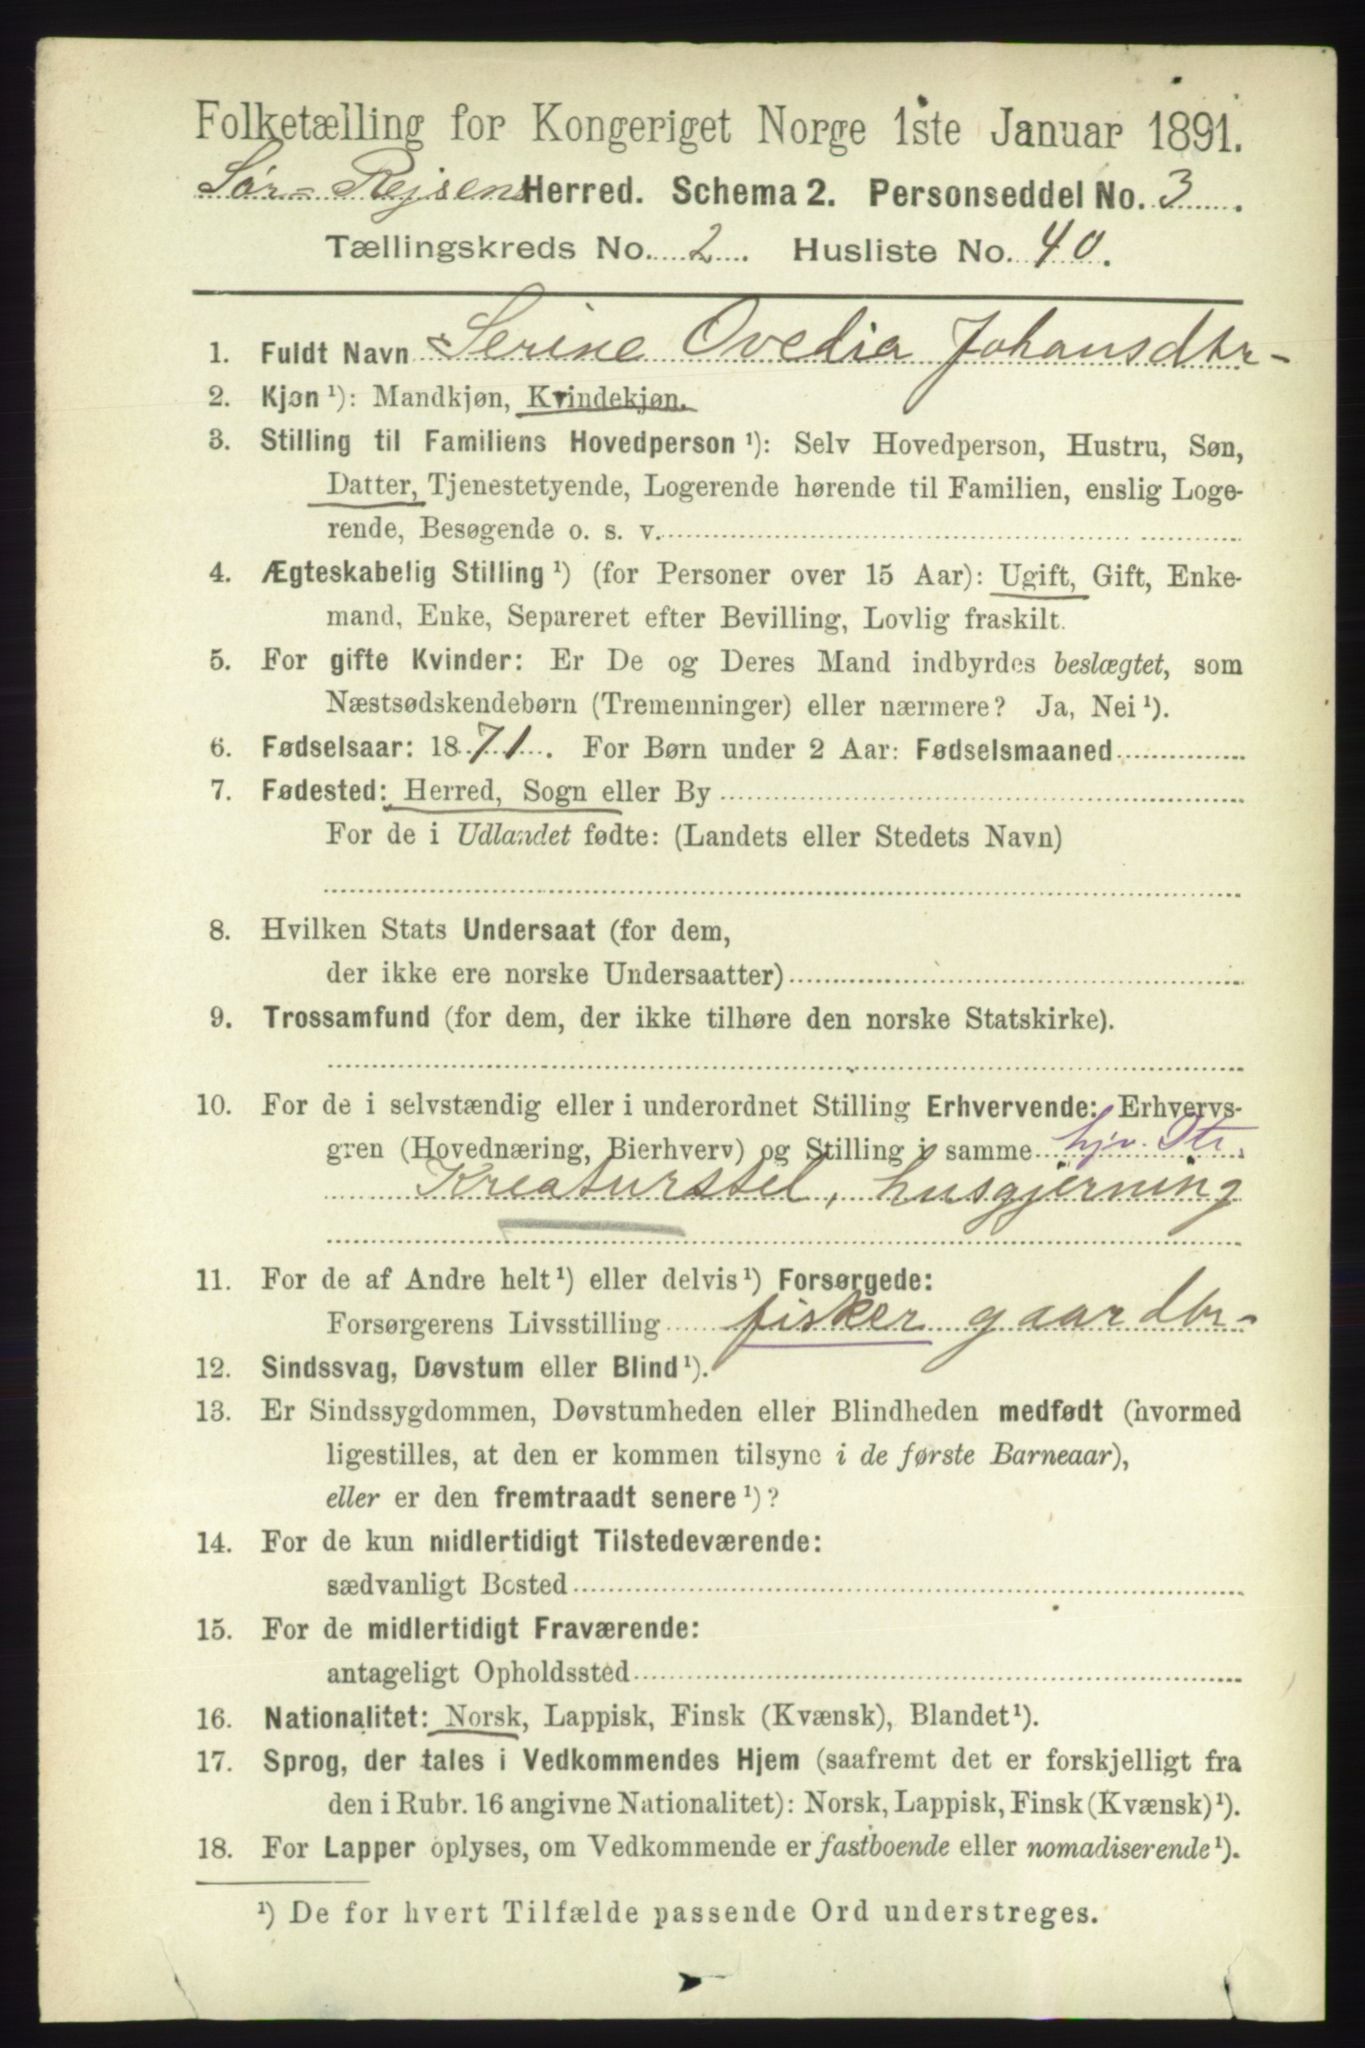 Folketælling for Kongeriget Norge 1ste Januar 1891.
Sør-Rejsens Herred. Schema 2. Personseddel No. 3.
Tællingskreds No. 2. Husliste No. 40.
1. Fuldt Navn Serine Ovedia Johansdtr-
2. Kjøn ¹): Mandkjøn, Kvindekjøn.
3. Stilling til Familiens Hovedperson ¹): Selv Hovedperson, Hustru, Søn,
Datter, Tjenestetyende, Logerende hørende til Familien, enslig Loge-
rende, Besøgende o. s. v.
4. Ægteskabelig Stilling ¹) (for Personer over 15 Aar): Ugift, Gift, Enke-
mand, Enke, Separeret efter Bevilling, Lovlig fraskilt.
5. For gifte Kvinder: Er De og Deres Mand indbyrdes beslægtet, som
Næstsødskendebørn (Tremenninger) eller nærmere? Ja, Nei ¹).
6. Fødselsaar: 1871. For Børn under 2 Aar: Fødselsmaaned
7. Fødested: Herred, Sogn eller By
For de i Udlandet fødte: (Landets eller Stedets Navn)
8. Hvilken Stats Undersaat (for dem,
der ikke ere norske Undersaatter)
9. Trossamfund (for dem, der ikke tilhøre den norske Statskirke).
10. For de i selvstændig eller i underordnet Stilling Erhvervende: Erhvervs-
gren (Hovednæring, Bierhverv) og Stilling i samme hjv. Dtr.
Kreaturstel, husgjerning
11. For de af Andre helt ¹) eller delvis ¹) Forsørgede:
Forsørgerens Livsstilling fisker gaardbr-
12. Sindssvag, Døvstum eller Blind ¹).
13. Er Sindssygdommen, Døvstumheden eller Blindheden medfødt (hvormed
ligestilles, at den er kommen tilsyne i de første Barneaar),
eller er den fremtraadt senere ¹)?
14. For de kun midlertidigt Tilstedeværende:
sædvanligt Bosted
15. For de midlertidigt Fraværende:
antageligt Opholdssted
16. Nationalitet: Norsk, Lappisk, Finsk (Kvænsk), Blandet ¹).
17. Sprog, der tales i Vedkommendes Hjem (saafremt det er forskjelligt fra
den i Rubr. 16 angivne Nationalitet): Norsk, Lappisk, Finsk (Kvænsk) ¹).
18. For Lapper oplyses, om Vedkommende er fastboende eller nomadiserende ¹).
¹) De for hvert Tilfælde passende Ord understreges.